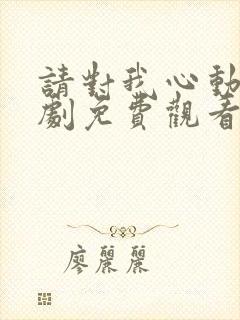 請對我心動
劇免費觀看
廖麗麗